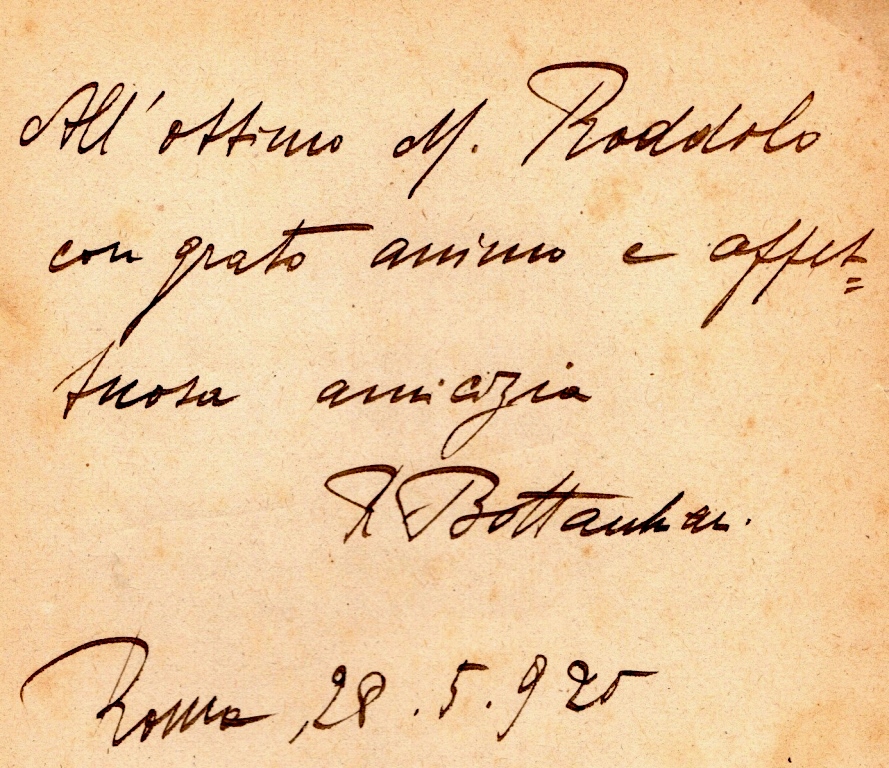 All'ottimo M. Roddolo
con grato animo e affet=
tuosa amicizia
Roma, 28.5.925